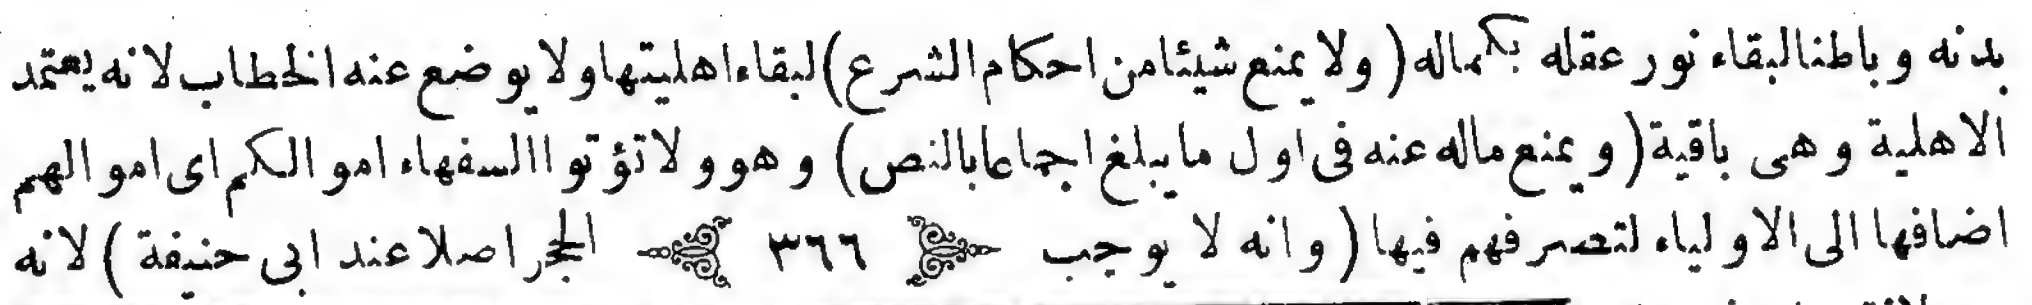 بدنه وباطنا لبقاء نور عقله بكماله (ولا يمنع شيئا من احكام الشرع) لبقاء اهليتها ولا يوضع عنه الخطاب لانه يعتمد
الاهلية وهى باقية (ويمنع ماله عنه فى اول ما يبلغ اجماعا بالنص) وهو ولا تؤتوا السفهاء اموالكم اى اموالهم
اضافها الى الاولياء لتصرفهم فيها (وانه لا يوجب ٣٦٦ الحجر اصلا عند ابى حنيفة) لانه